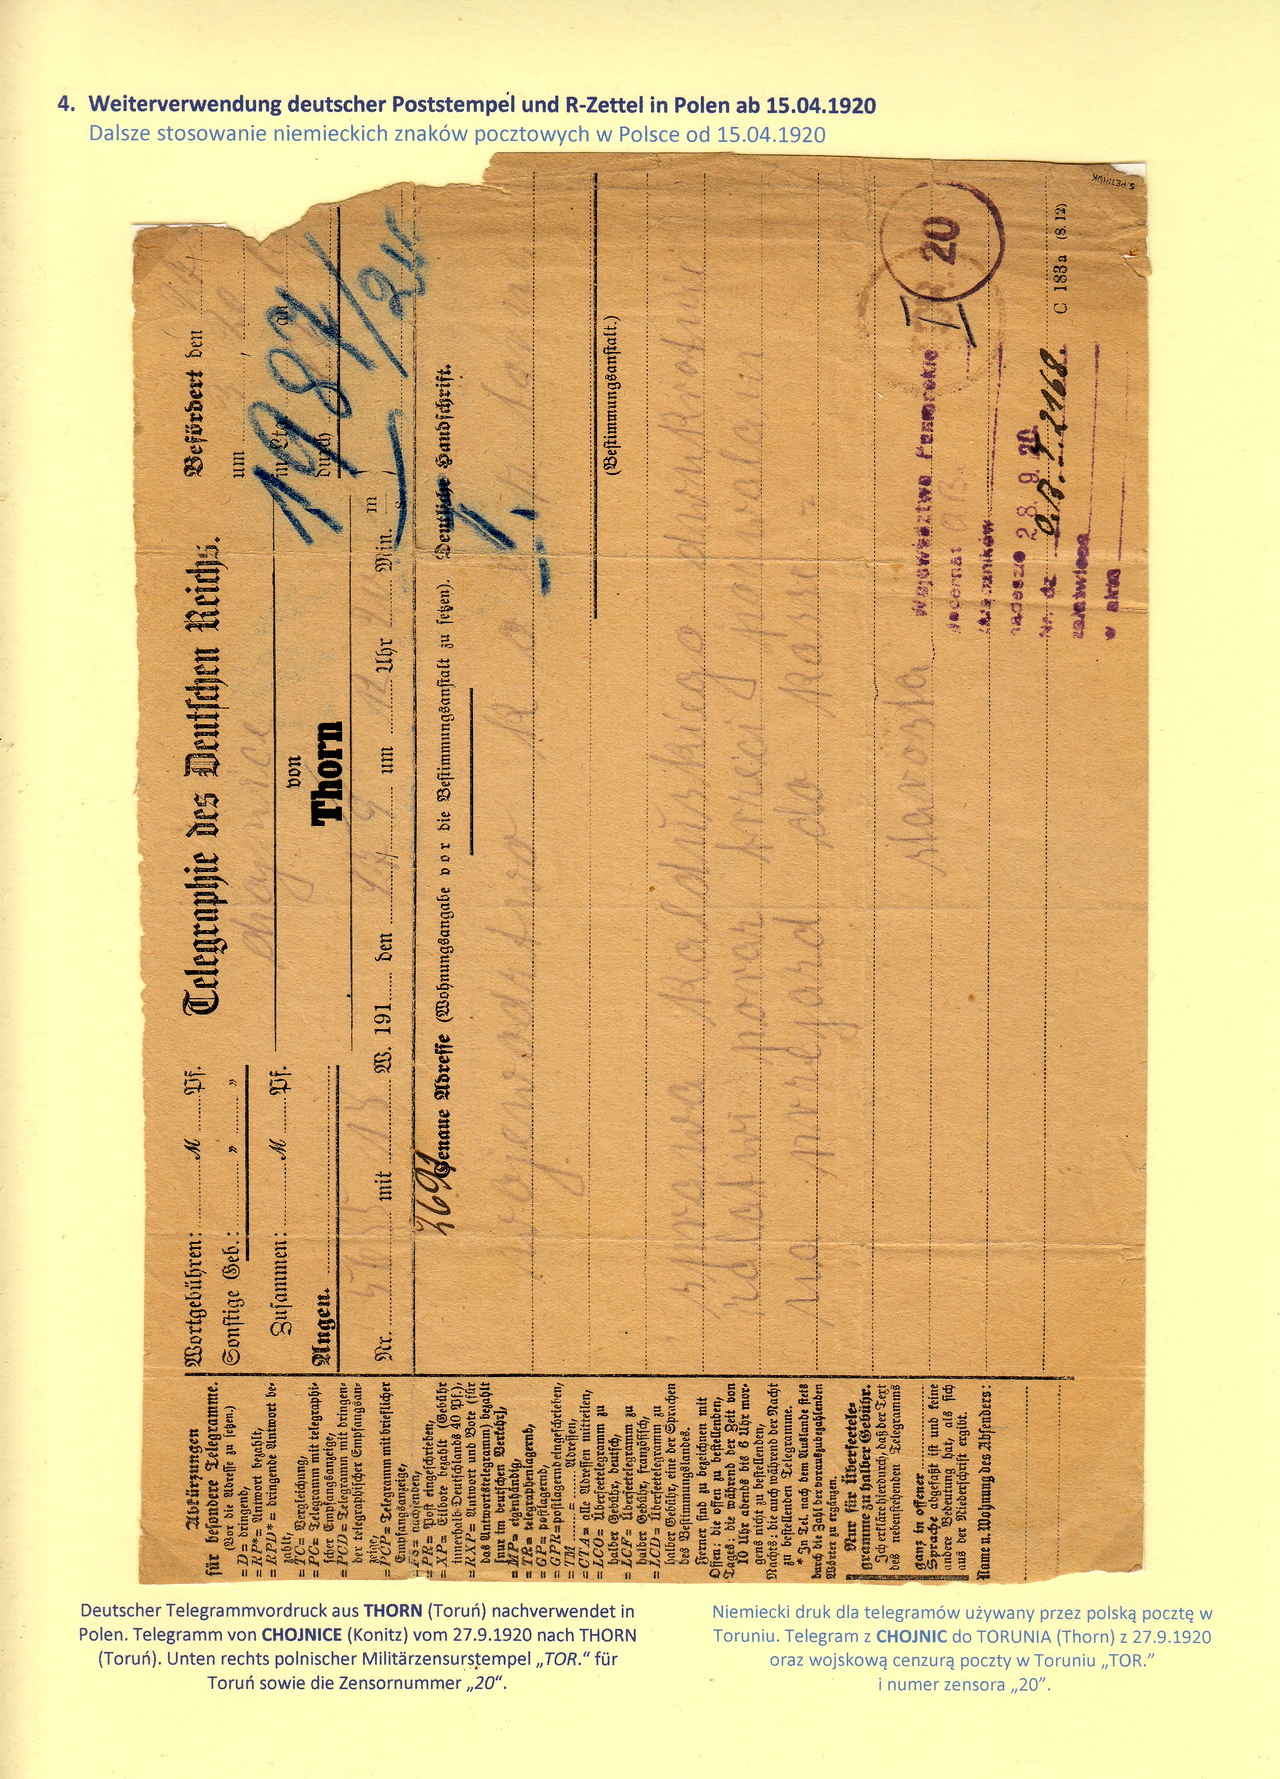 4. Weiterverwendung deutscher Poststempel und R-Zettel in Polen ab 15.04.1920
Dalsze stosowanie niemieckich znaków pocztowych w Polsce od 15.04.1920
S. PETRIUK
Telegraphie des Deutschen Reichs.
Wortgebühren: M Pf.
Sonstige Geb.: „ „
Zusammen: M Pf.
Angen.
Chojnice
von
Thorn
Befördert den
um
in Ltg. an
durch
11987/
/24
Nr. 5655 mit 13 W. 191 den 27/9 um 12 Uhr Min. m
s
2691
Genaue Adresse (Wohnungsangabe vor die Bestimmungsanstalt zu setzen). Deutliche Handschrift.
wojewodztwo
(Bestimmungsanstalt.)
sprawa
do
Województwa Pomorskie
TOR. 20
nadeszło 28. 9. 20
Nr. dz. 2168
załatwiono
w aktа
C 183a (8. 12)
Abkürzungen
für besondere Telegramme.
(Vor die Adresse zu setzen.)
=D= dringend,
=RP*= Antwort bezahlt,
=RPD*= dringende Antwort be-
zahlt,
=TC= Vergleichung,
=PC= Telegramm mit telegraphi-
scher Empfangsanzeige,
=PCD= Telegramm mit dringen-
der telegraphischer Empfangsan-
zeige,
=PCP= Telegramm mit brieflicher
Empfangsanzeige,
=FS= nachsenden,
=PR= Post eingeschrieben,
=XP= Eilbote bezahlt (Gebühr
innerhalb Deutschlands 40 Pf.),
=RXP= Antwort und Bote (für
das Antwortstelegramm) bezahlt
[nur im deutschen Verkehr],
=MP= eigenhändig,
=TR= telegraphenlagernd,
=GP= postlagernd,
=GPR= postlagernd eingeschrieben,
=TM ..... = Adressen,
=CTA= alle Adressen mitteilen,
=LCO= Überseetelegramm zu
halber Gebühr, deutsch,
=LCF= Überseetelegramm zu
halber Gebühr, französisch,
=LCD= Überseetelegramm zu
halber Gebühr, eine der Sprachen
des Bestimmungslandes.
Ferner sind zu bezeichnen mit
Offen: die offen zu bestellenden,
Tages: die während der Zeit von
10 Uhr abends bis 6 Uhr mor-
gens nicht zu bestellenden,
Nachts: die auch während der Nacht
zu bestellenden Telegramme.
* In Tel. nach dem Auslande stets
durch die Zahl der vorauszubezahlenden
Wörter zu ergänzen.
Nur für Überseetele-
gramme zu halber Gebühr.
Ich erkläre hierdurch, daß der Text
des nebenstehenden Telegramms
ganz in offener
Sprache abgefaßt ist und keine
andere Bedeutung hat, als sich
aus der Niederschrift ergibt.
Name u. Wohnung des Absenders:
Deutscher Telegrammvordruck aus THORN (Toruń) nachverwendet in
Polen. Telegramm von CHOJNICE (Konitz) vom 27.9.1920 nach THORN
(Toruń). Unten rechts polnischer Militärzensurstempel „TOR.“ für
Toruń sowie die Zensornummer „20“.
Niemiecki druk dla telegramów używany przez polską pocztę w
Toruniu. Telegram z CHOJNIC do TORUNIA (Thorn) z 27.9.1920
oraz wojskową cenzurą poczty w Toruniu „TOR.”
i numer zensora „20”.